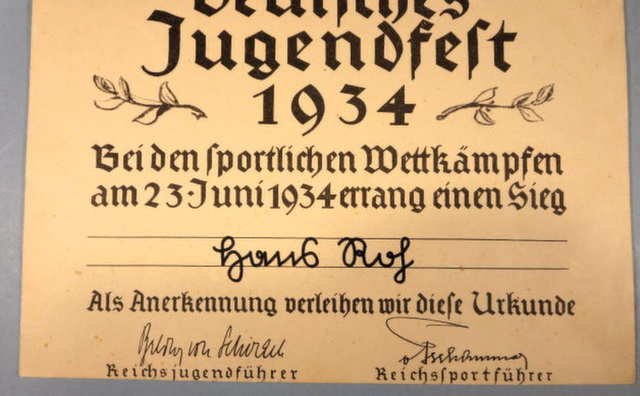 Deutsches
Jugendfest
1934
Bei den sportlichen Wettkämpfen
am 23. Juni 1934 errang einen Sieg
Hans Roh
Als Anerkennung verleihen wir diese Urkunde
Baldur von Schirach
v. Tschammer
Reichsjugendführer Reichssportführer